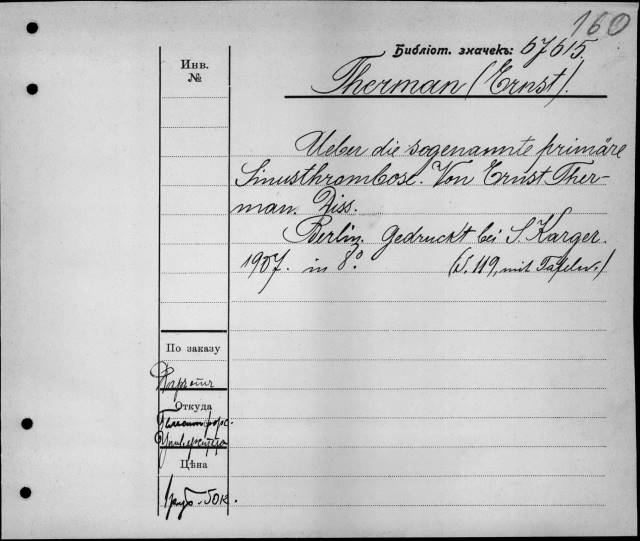 160
Библіот. значекъ: 67615.
Инв.
№
Therman (Ernst).
Ueber die sogenannte primäre
Sinusthrombose. Von Ernst Ther-
man. Diss.
Berlin. gedruckt bei S. Karger.
1907. in 8º. (S. 119, mit Tafeln.)
По заказу
Откуда
Гельсингфорс.
Университета
Цѣна
1 руб. 50 к.